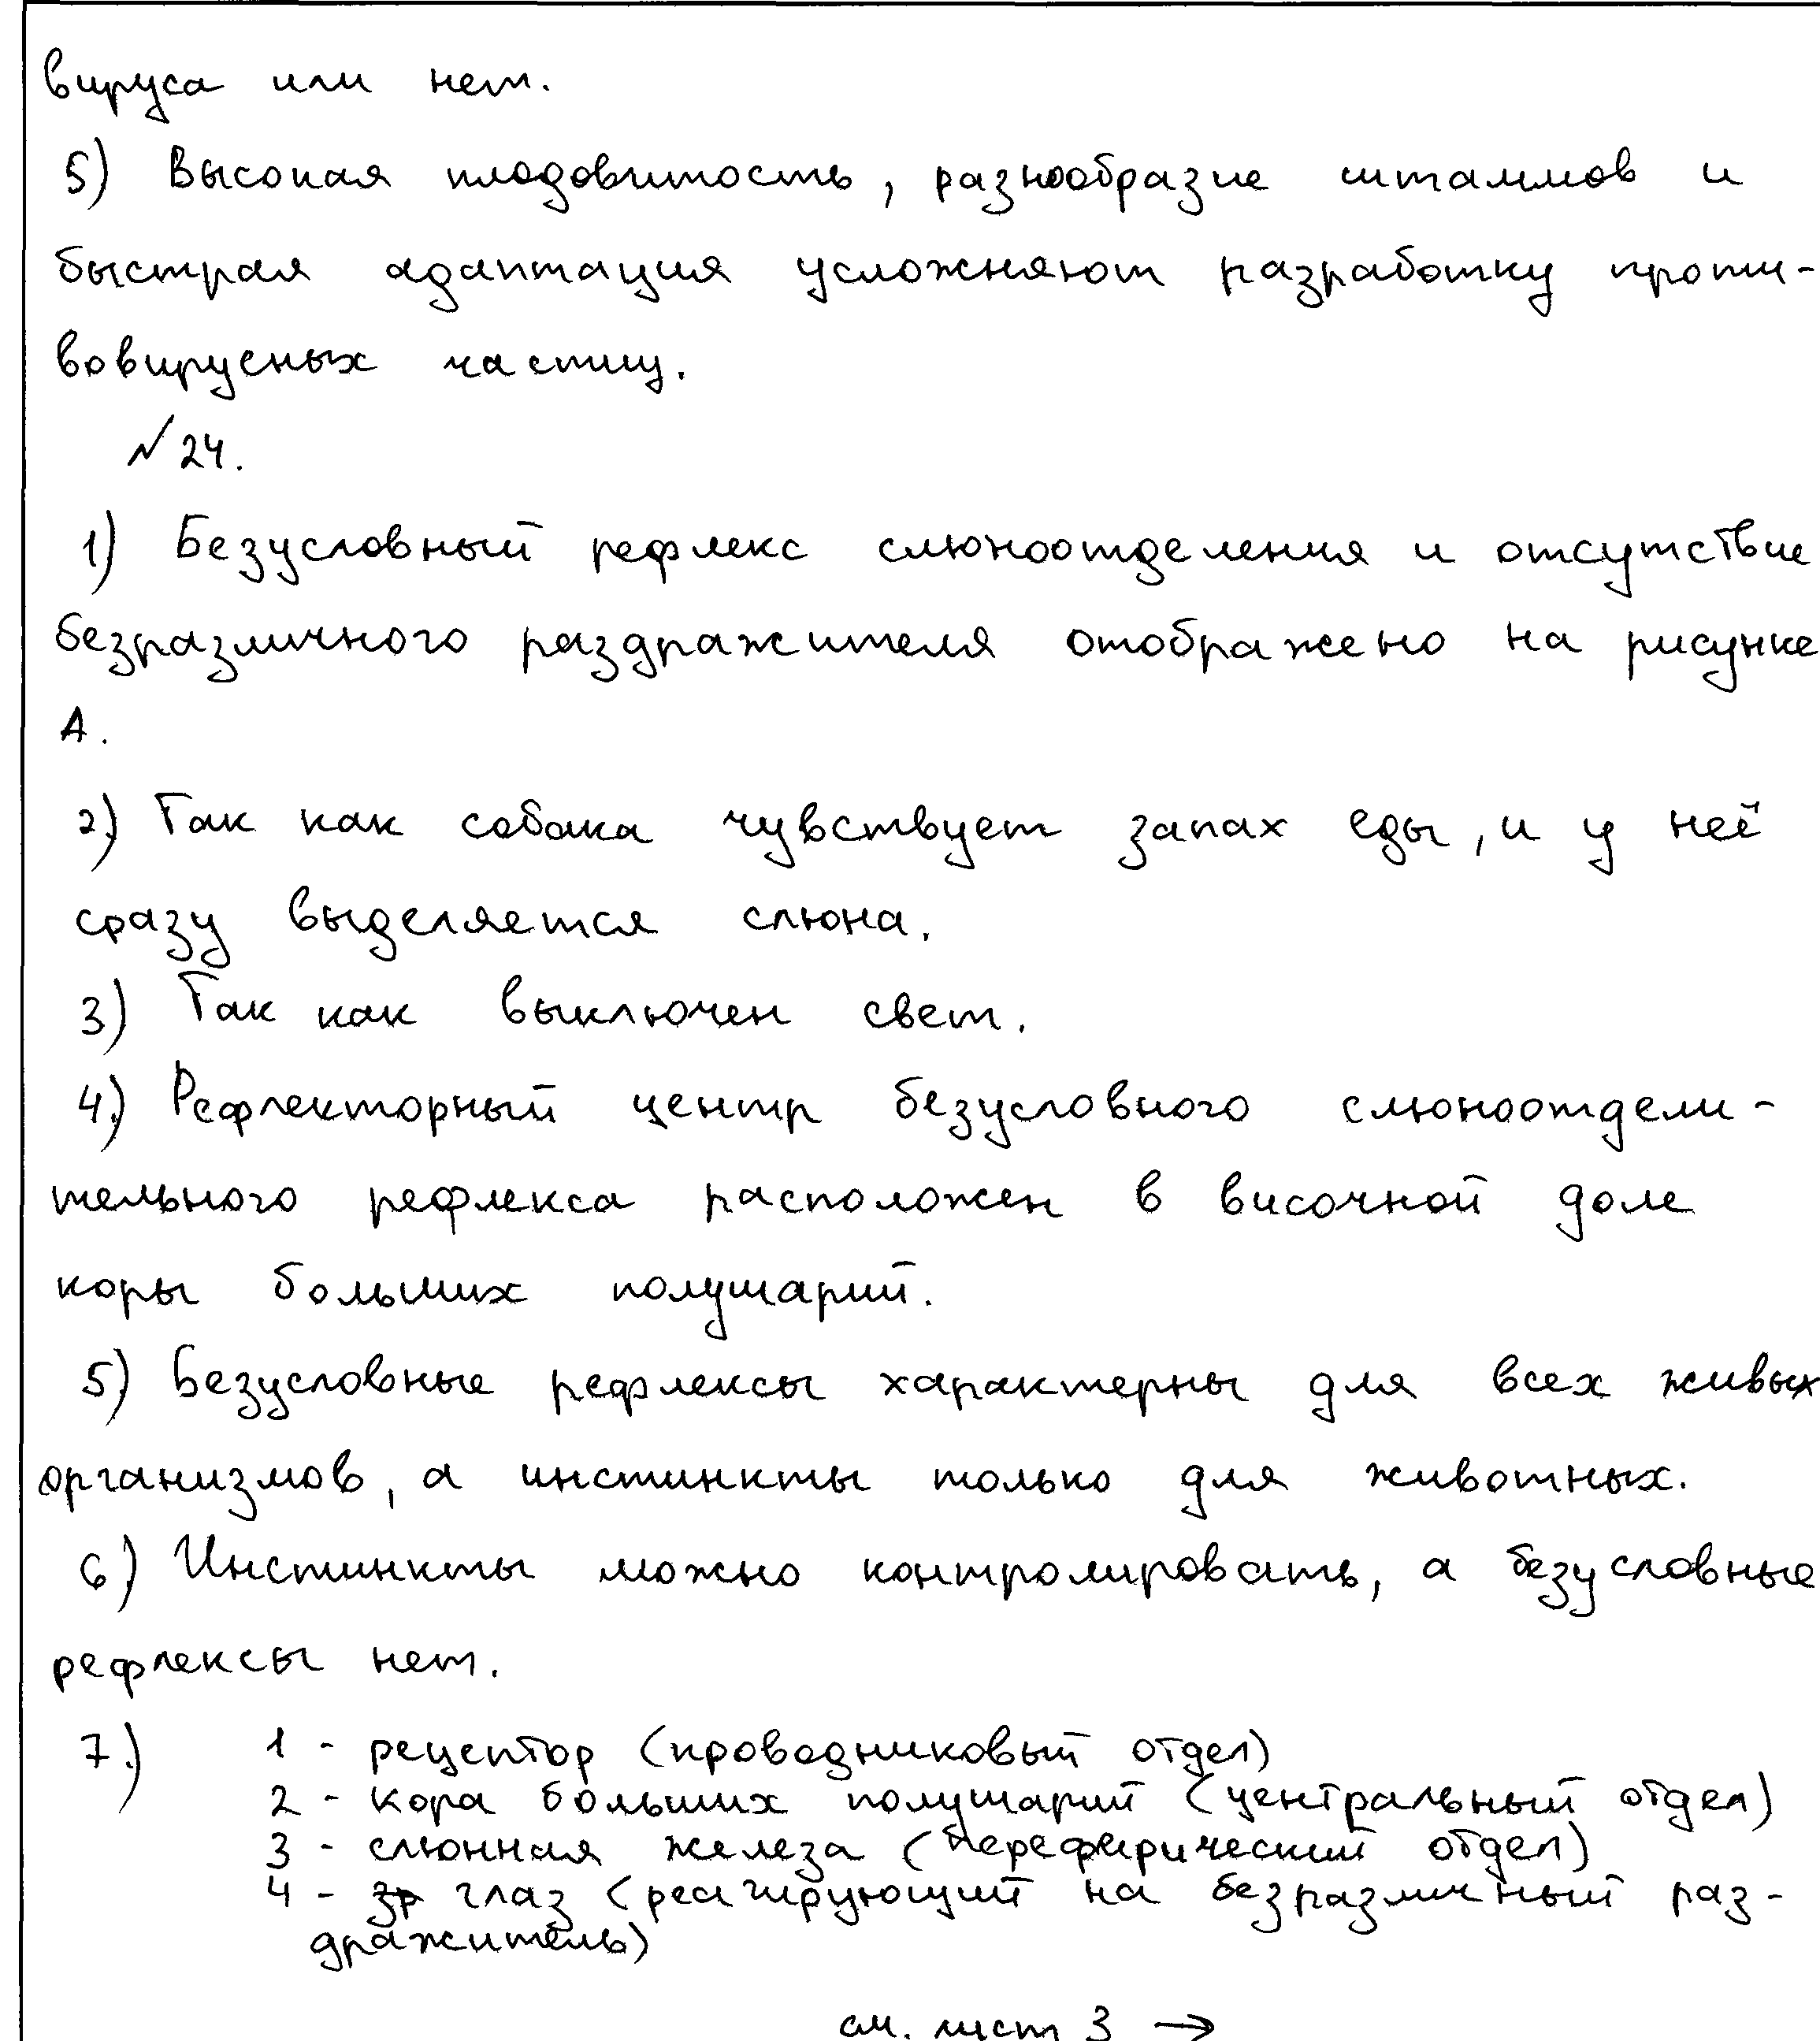 вируса или нет.
5) Высокая плодовитость, разнообразие штаммов и
быстрая адаптация усложняют разработку проти-
вовирусных частиц.
№24.
1) Безусловный рефлекс слюноотделения и отсутствие
безразличного раздражителя отображено на рисунке
А.
2) Так как собака чувствует запах еды, и у неё
сразу выделяется слюна.
3) Так как выключен свет.
4) Рефлекторный центр безусловного слюноотдели-
тельного рефлекса расположен в височной доле
коры больших полушарий.
5) Безусловные рефлексы характерны для всех живых
организмов, а инстинкты только для животных.
6) Инстинкты можно контролировать, а безусловные
рефлексы нет.
7) 1 - рецептор (проводниковый отдел)
2 - кора больших полушарий (центральный отдел)
3 - слюнная железа (переферический отдел)
4 - зр глаз (реагирующий на безразличный раз-
дражитель)
см. лист 3 →